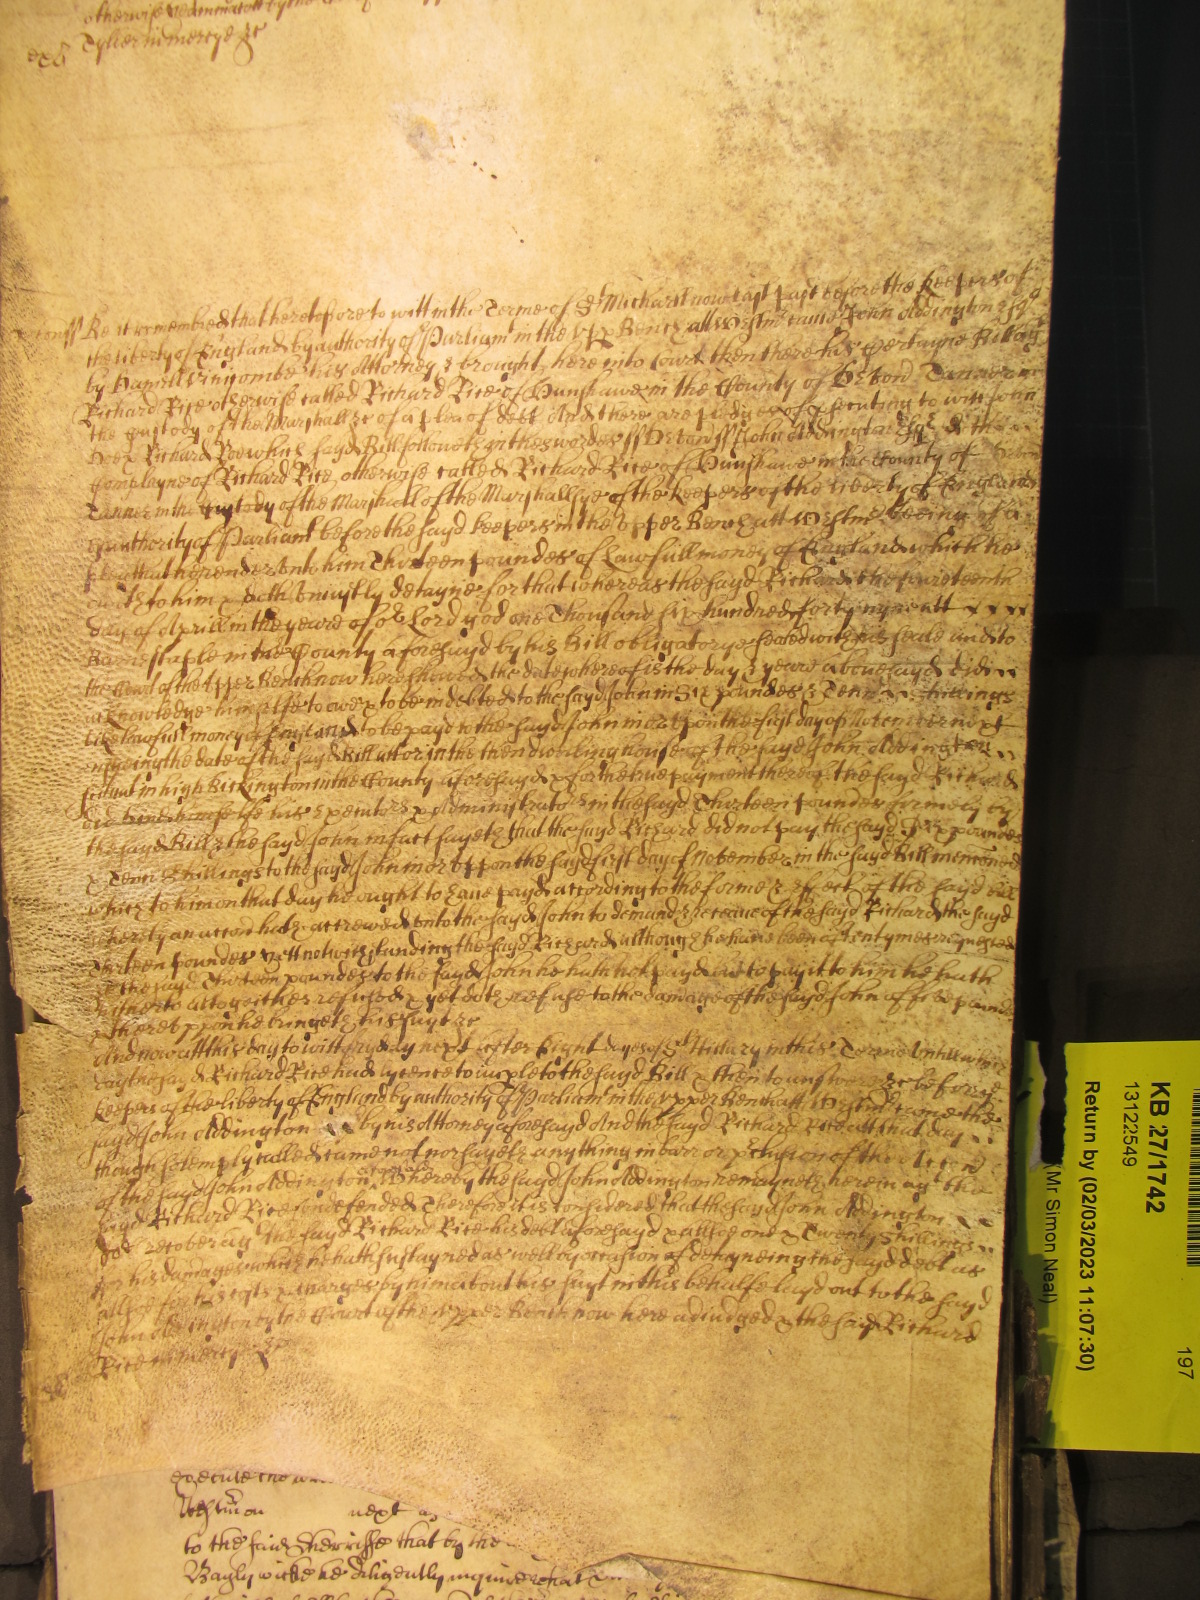 otherwise
Tyler in mercye &c
Devon ss Be it remembred that heretofore to witt in the Terme of St Michaell now last past before the keepers of
the liberty of England by authority of Parliamt in the Upper Bench att Westmr came John Addington Esqr
by his Attorney & brought here into Court then there his certayne Bill agt
Richard Rice otherwise called Richard Rice of Hunshawe in the County of Devon Tanner in
the custody of the Marshall &c of a plea of debt And there are pledges of prosecuting to witt John
Doe & Richard Roe which sayd Bill followeth in these wordes ss Devon ss John Addington Esqr
complaynes of Richard Rice otherwise called Richard Rice of Hunshawe in the County of Devon
Tanner in the custody of the Marshall of the Marshallsye of the keepers of the liberty of England
by authority of Parliamt before the sayd keepers in the Upper Bench att Westmr beeing of a
plea that he render unto him Thirteen poundes of lawfull money of England which he
oweth to him & uniustly detaynes for that whereas the sayd Richard the
day of Aprill in the yeare of our Lord god one Thousand six hundred forty nyne att
Barnestaple in the County aforesayd by his Bill obligatorye sealed with his seale and to
the Court of the Upper Bench now here shewed the date whereof is the day & yeare abovesayd did
acknowledge himselfe to owe & to be indebted to the sayd John in Six poundes & Tenn shillings
like lawfull money of England to be payd to the sayd John upon the first day of November next
ensueing the date of the sayd Bill att or in the then dwelling house of the sayd John Addington
scituat in high Bickington in the County aforesayd & for the true payment thereof the sayd Richard
did bind himselfe his Executors & Administrators in the sayd Thirteen poundes by
the sayd Bill & the sayd John in fact sayeth that the sayd Richard did not pay the sayd Six poundes
& Tenn Shillings to the sayd John uppon the sayd first day of November in the sayd Bill menconed
which to him on that day he ought to have payd according to the forme & effect of the sayd Bill
whereby an accon hath accrewed unto the sayd John to demand & receave of the sayd Richard the sayd
Thirteen poundes Yett notwithstanding the sayd Richard although he have been oftentymes requested
the sayd Thirteen poundes to the sayd John he hath not payd but to pay it to him he hath
hitherto altogether refused & yet doth refuse to the damage of the sayd John of five pounds
& thereuppon he bringeth his suyte &c
And now att this day to witt fryday next after Eight dayes of St Hillary in this Terme untill which
day the sayd Richard Rice had lycence to imple to the sayd Bill & then to answere &c before the
keepers of the liberty of England by authority of Parliamt in the Upper Bench att Westmr came the
sayd John Addington by his Attorney aforesayd And the sayd Richard Rice att that day
though solemply called came not nor sayeth anything in barr or preclusion of the Accon
of the sayd John Addington aforesayd Whereby the sayd John Addington remayneth herein agt the
sayd Richard Rice undefended Therefore it is considered that the sayd John Addington
doe recover agt the sayd Richard Rice his debt aforesayd & allsoe one & Twenty shillings
for his damages which he hath sustayned as well by occasion of deteyneing the sayd debt as
allsoe for his costs & charges by him about his suyt in this behalfe layd out to the sayd
John Addington by the Court of the Upper Bench now here adiudged & the sayd Richard
Rice in mercy &c
next
to the said Sherriffe that by the
Baylywicke he diligently inquire what
KB 27/1742
13122549
Return by (02/03/2023 11:07:30)
(Mr Simon Neal)
197